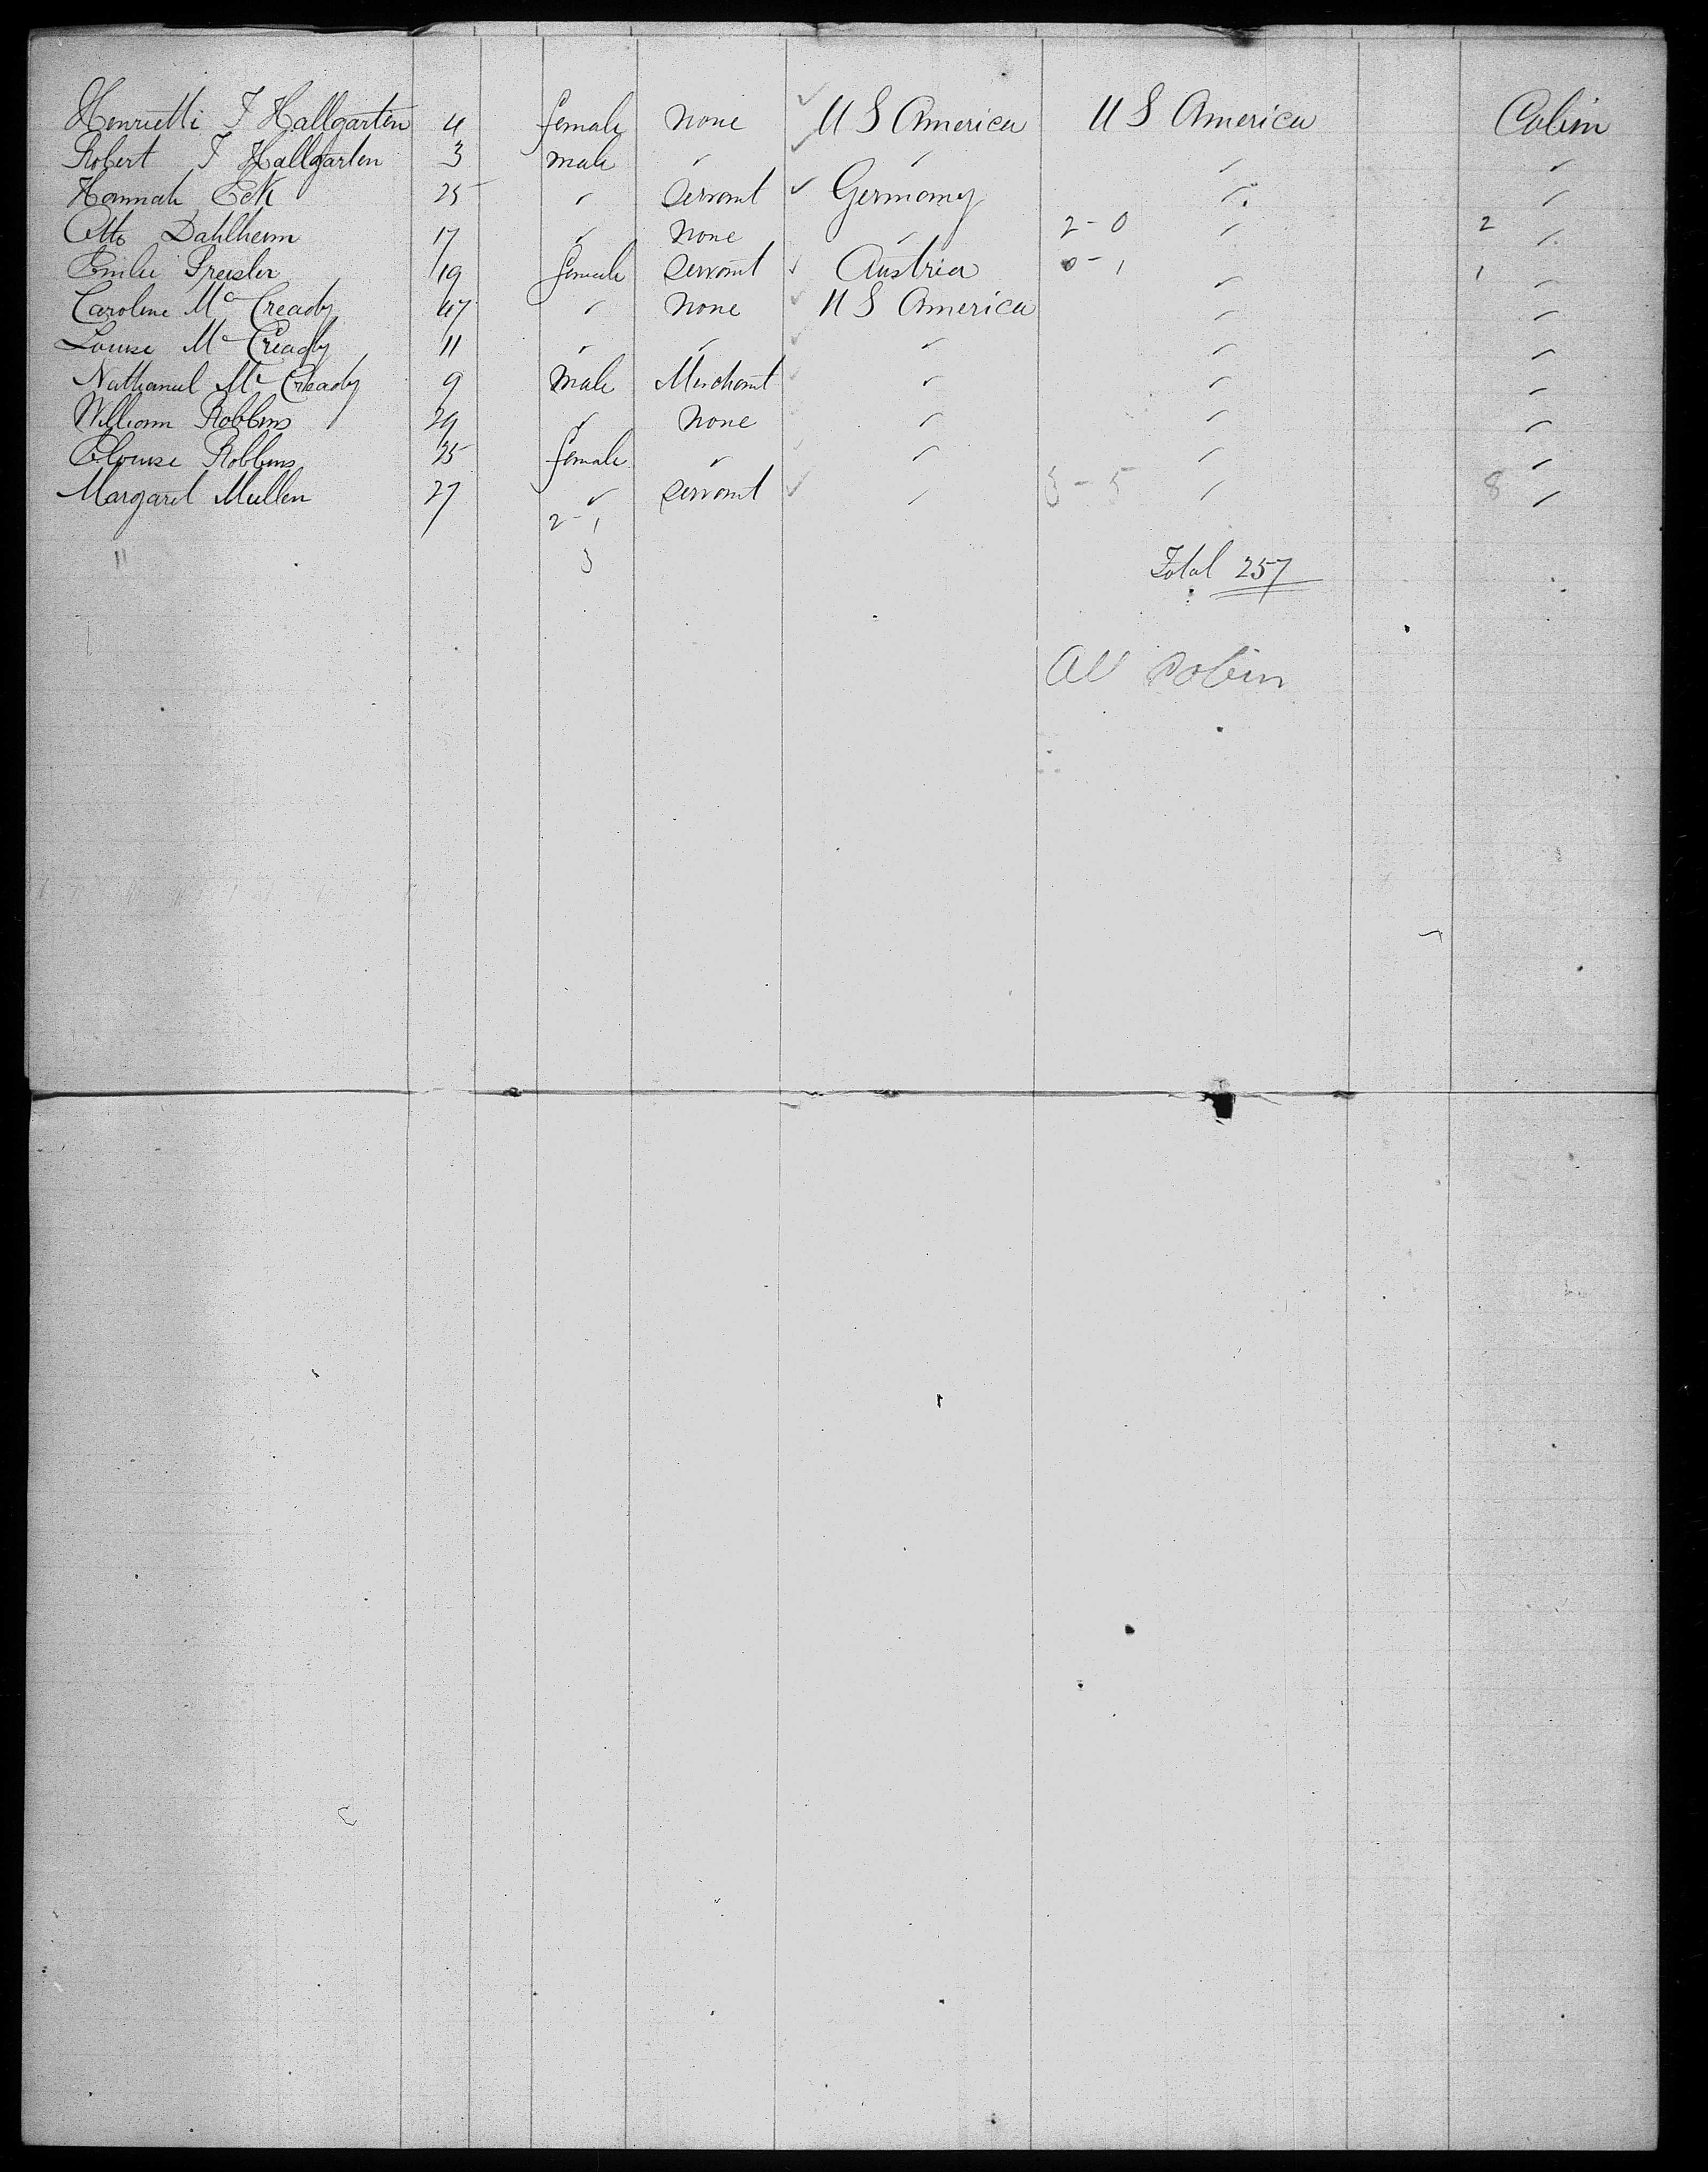 Henrietti F Hallgarten 4 female none ✓ U S America U S America Cabin
Robert F Hallgarten 3 male " ✓ " " "
Hannah Eck 25 " Servant ✓ Germany " "
Otto Dahlheim 17 " None " 2-0 " 2 "
Emilie Preisler 19 female Servant ✓ Austria 0-1 " 1 "
Caroline McCready 47 " None ✓ U S America " "
Louise McCready 11 " " ✓ " " "
Nathanul McCready 9 Male Merchant ✓ " " "
William Robbins 29 " None " " "
Elouise Robbins 25 female " " " "
Margaret Mullen 27 " Servant ✓ " 3-5 " 8 "
2-1
11 3 Total 257
All Cabin